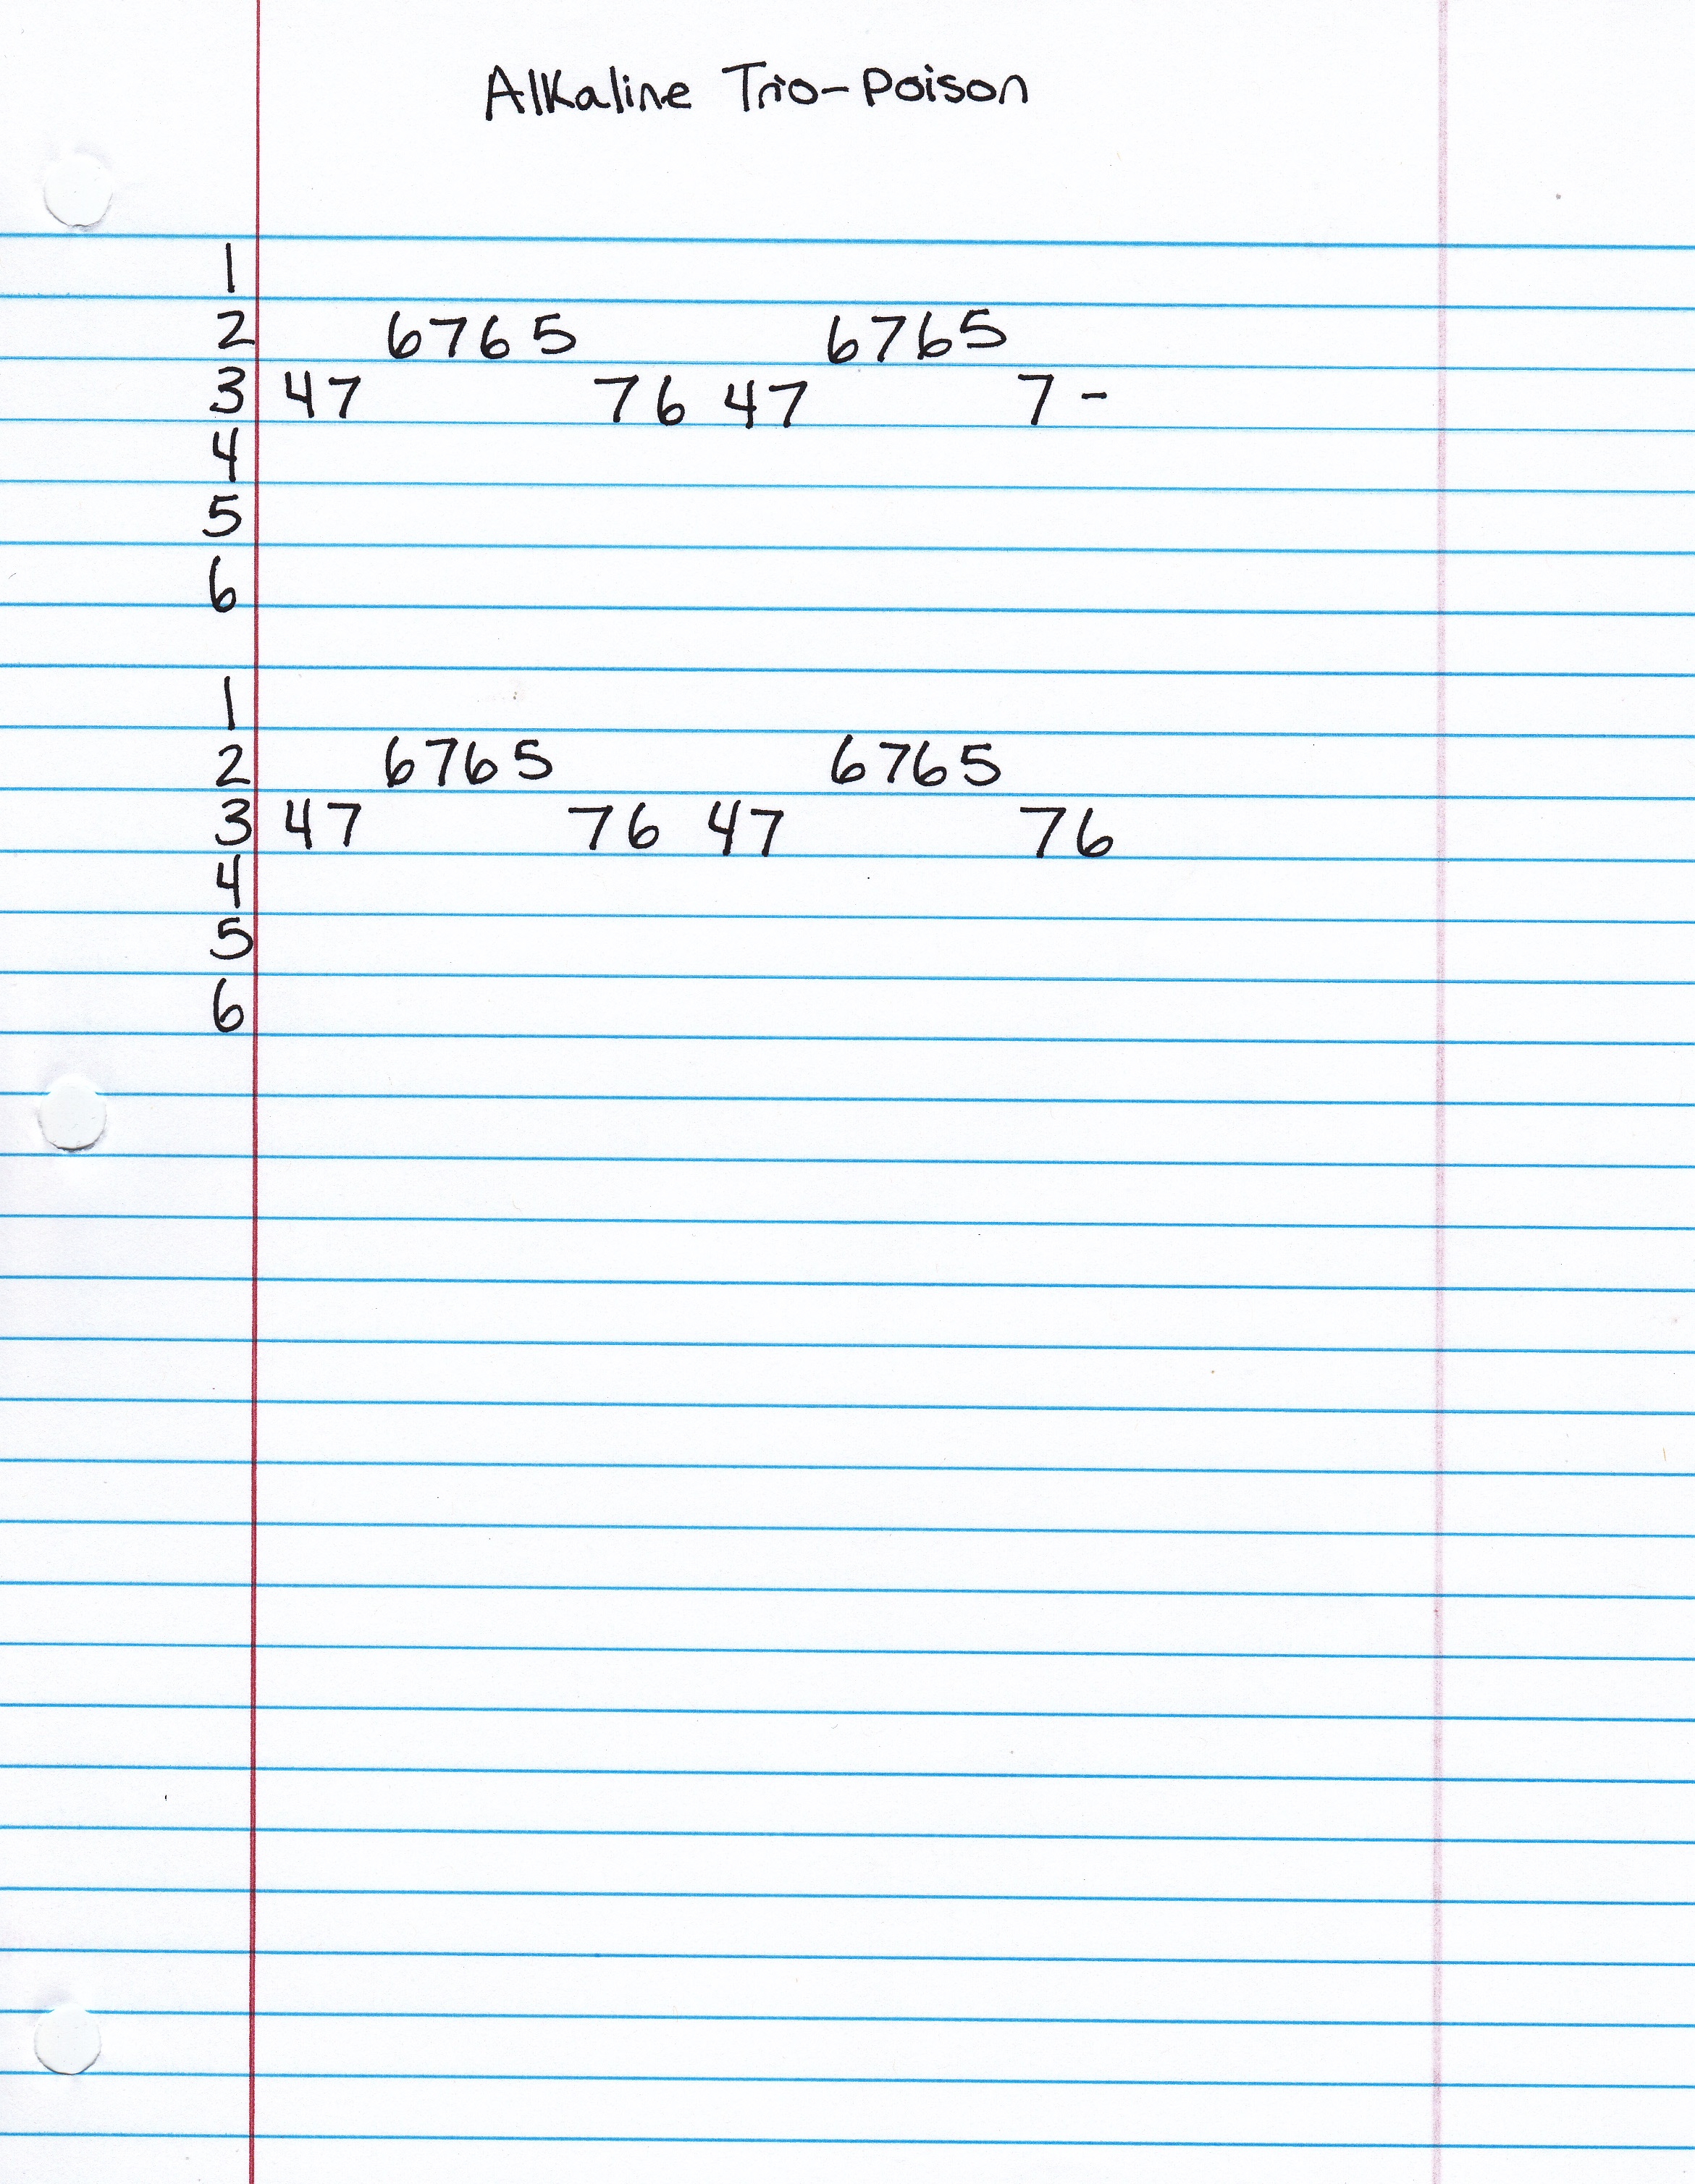 Alkaline Trio-Poison
1
2 6765 6765
3 47 76 47 7 -
4
5
6
1
2 6765 6765
3 47 76 47 76
4
5
6